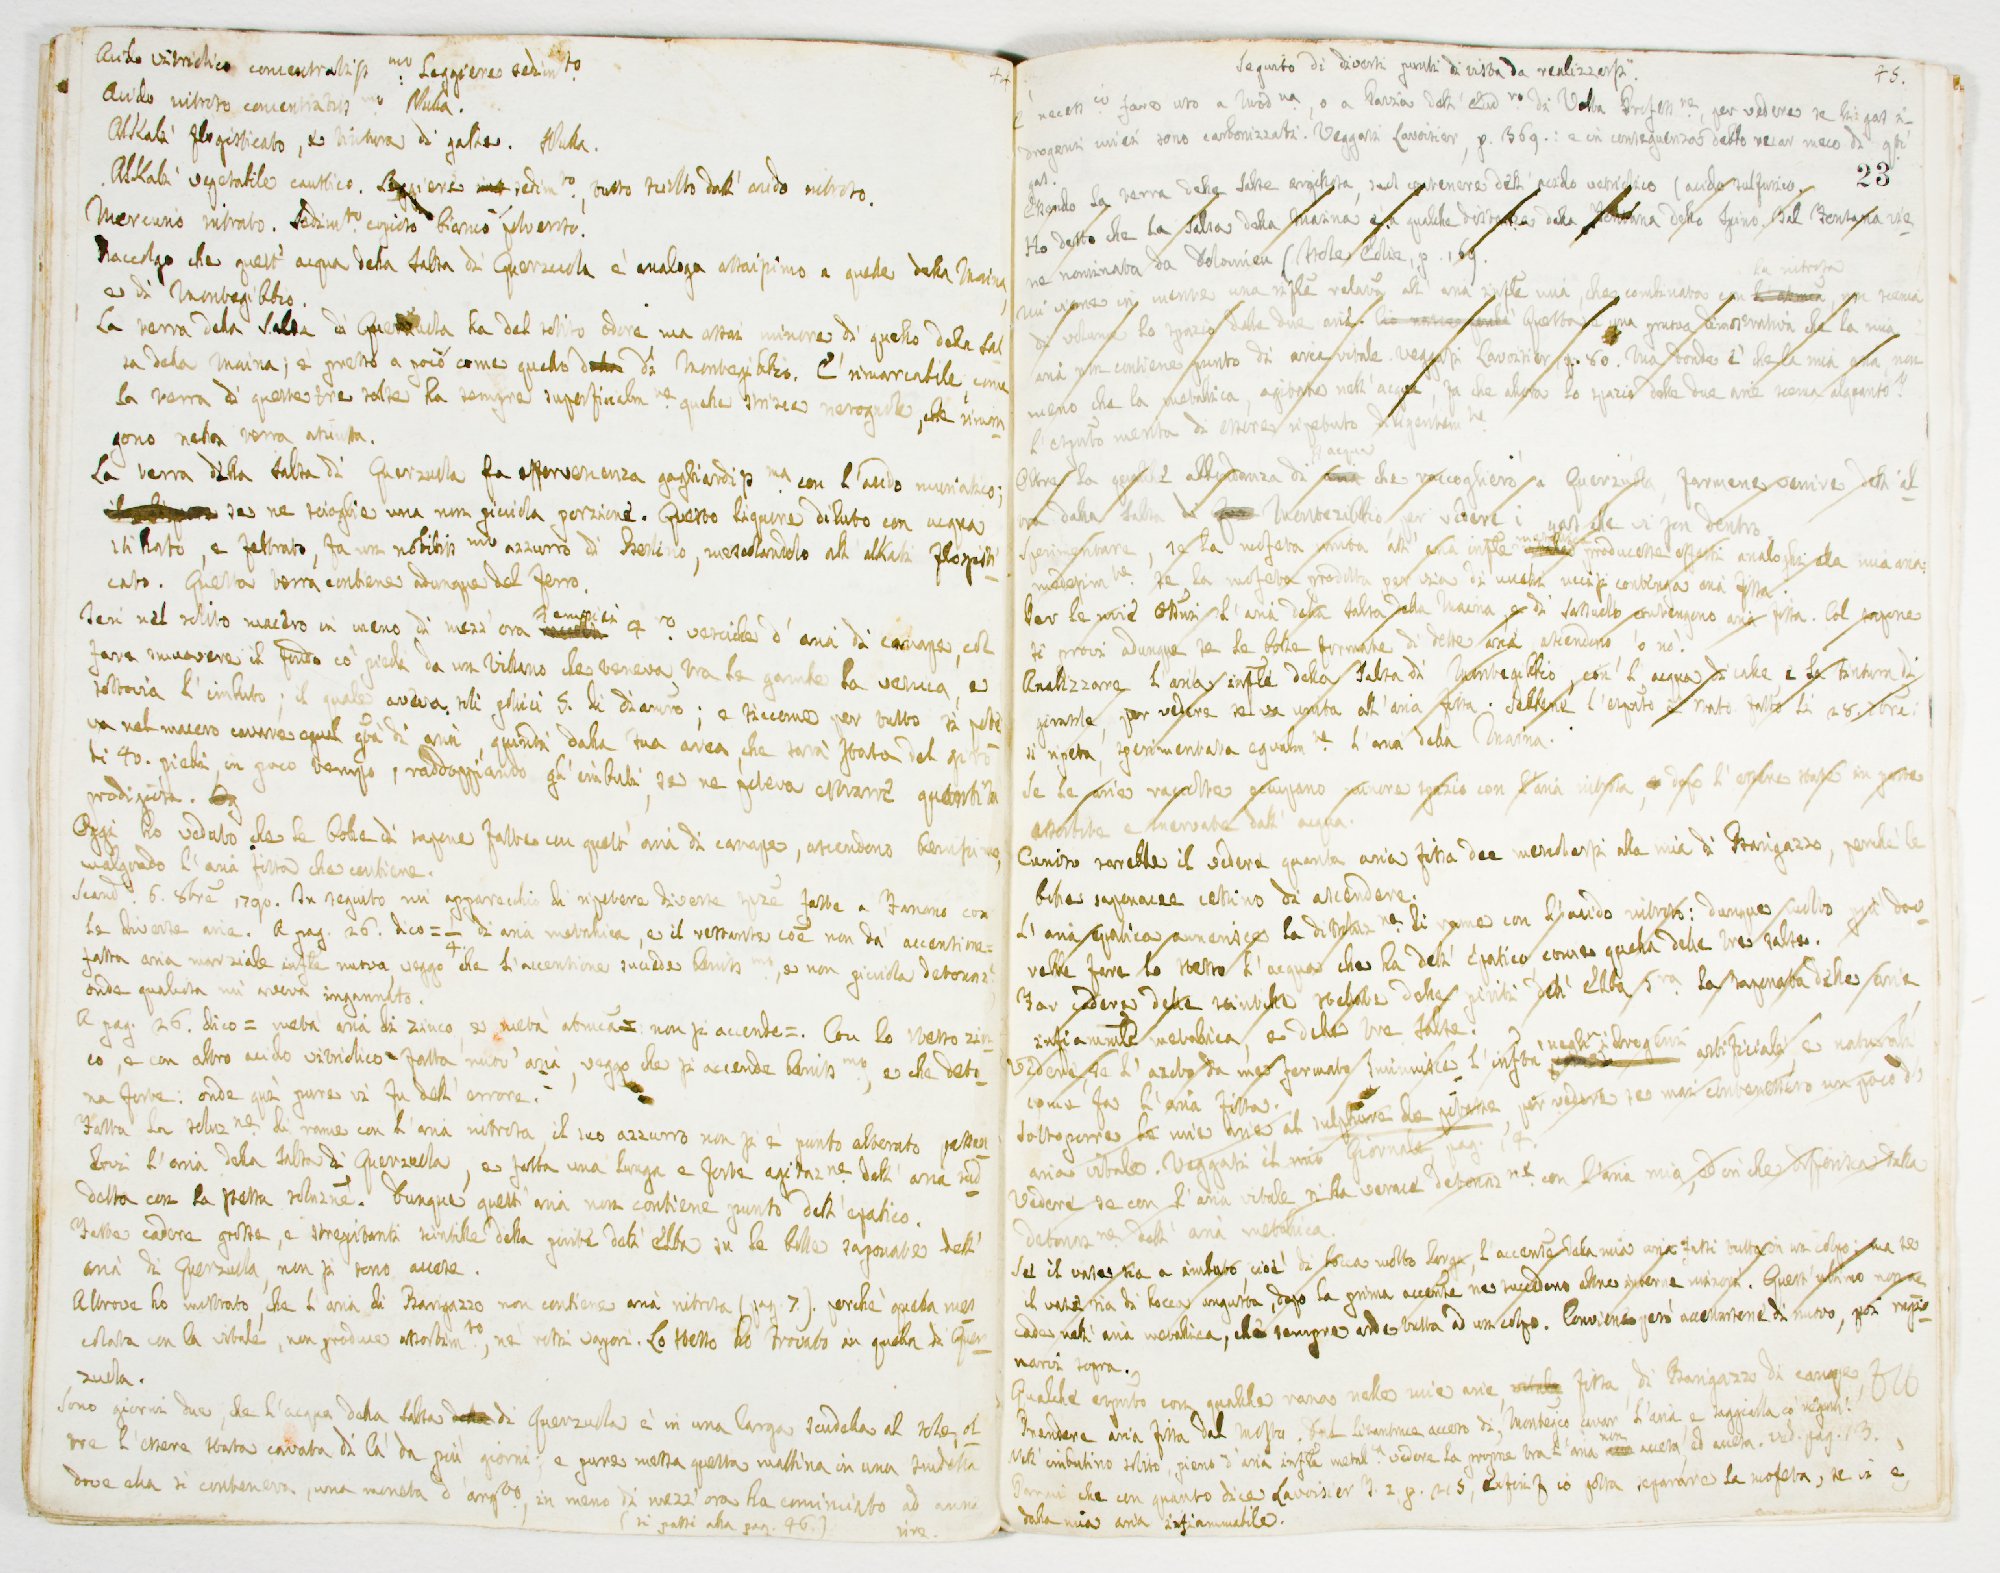 44
Acido vitriolico concentratiss.mo Leggiere sedim.to
Acido nitroso concentratiss.mo Nulla.
Alkali flogisticato, e tintura di galle. Nulla.
Alkali vegetabile caustico. Leggiere sedim.to, tutto sciolto dall' acido nitroso.
Mercurio nitrato. Sedim.to copioso bianco polveroso.
Raccolgo che quest' acqua della Salsa di Querzuola è analoga assaissimo a quelle della Maina,
e di Montegibbio.
La terra della Salsa di Querzuola ha del solito odore ma assai minore di quello della Sal-
sa della Maina; è presso a poco come quello di Montegibbio. È rimarcabile, come
la terra di queste tre salse ha sempre superficialm.te qualche strisce nerognole, che riman-
gono nella terra asciutta.
La terra della Salsa di Querzuola fa effervescenza gagliardiss.ma con l'acido muriatico;
se ne scioglie una non picciola porzione. Questo liquore diluto con acqua
stillato, e feltrato, fa un nobiliss.mo azzurro di Berlino, mescolandolo all' alkali flogisti-
cato. Questa terra contiene adunque del ferro.
Ieri nel solito macero in meno di mezz' ora riempiei 4 vesciche d' aria di canape, col
fare smuovere il fondo co' piedi da un Villano che veniva tra le gambe la vescica, e
sottovia l' imbuto; il quale aveva soli pollici 5. di diametro; e siccome per tutto si pote-
va nel macero cavare egual q.tà di aria, quindi dalla sua area, che sarà stata del giro
di 40. piedi, in poco tempo, raddoppiando gl' imbuti, se ne poteva estrarre quantità
prodigiosa.
Oggi ho veduto che le bolle di sapone fatte con quest' aria di canape, ascendono benissimo,
malgrado l' aria fissa che contiene.
Scand. 6. 8bre 1790. In seguito mi apparecchio di ripetere diverse spze fatte a Fanano con
le diverse arie. A pag. 26. dico = 1/4 di aria metallica, e il restante coe non dà accensione =
fatta aria marziale infle nuova veggo che l' accensione succede beniss.mo, e non picciola detonaz.
onde qualcosa mi aveva ingannato.
A pag. 26. dico = metà aria di zinco, e metà atmca = non si accende =. Con lo stesso zin-
co, e con altro acido vitriolico fatta nuov' aria, veggo che si accende beniss.mo, e che deto-
na forte: onde quì pure vi fu dell' errore.
Fatta la soluz.ne di rame con l' aria nitrosa, il suo azzurro non si è punto alterato
l' aria della Salsa di Querzuola, e fatta una lunga e forte agitaz.ne dell' aria sud-
detta con la stessa soluzne. Dunque quest' aria non contiene punto dell' epatico.
Fatte cadere grosse, e strepitanti scintille della pirite dell' Elba su le bolle saponate dell'
aria di Querzuola, non si sono accese.
Altrove ho mostrato, che l' aria di Barigazzo non contiene aria nitrosa (pag. 7). perchè quella mes-
colata con la vitale, non produce assorbim.to, nè rossi vapori. Lo stesso ho trovato in quella di Quer-
zuola.
Sono giorni due, che l' acqua della Salsa di Querzuola è in una larga scudella al sole, ol-
tre l' essere stata cavata di là da più giorni; e pure messa questa mattina in una scudella
dove ella si conteneva, una moneta d' arg.to, in meno di mezz' ora ha cominciato ad anne-
rire.
(si passi alla pag. 46.)
Seguito di diversi punti di vista da realizzarsi.
45.
23
È necess.io fare uso a Mod.na, o a Pavia dell' Eud.ro di Volta Profess.re, per vedere se li gas i-
drogeni miei sono carbonizzati. Veggasi Lavoisier, p. 369.: e in conseguenza debbo recar meco di qsti
gas.
Essendo la terra delle Salse argillosa, può contenere dell' acido vetriolico (acido sulfurico.
Ho detto che la Salsa della Maina, è a qualche distanza della Fontana dello Spino. Tal Fontana vie-
ne nominata da Dolomieu (Isole Eolie, p. 169).
Mi viene in mente una rifle relatva all' aria infle mia, che combinata con la nitrosa, non scema
di volume lo spazio delle due arie. Questa è una pruova dimostrativa che la mia
aria non contiene punto di aria vitale. Veggasi Lavoisier p. 80. Ma donde è che la mia aria, non
meno che la metallica, agitate nell' acqua, fa che allora lo spazio delle due arie scema alquanto?
L' espto merita di essere ripetuto diligentem.te
Oltre la qualche abbondanza di acqua che raccoglierò a Querzuola, farmene venire dell' al-
tra dalla Salsa di Montezibbio per vedere i gas che vi son dentro.
Sperimentare, se la mofeta unita all' aria infle metallica producesse effetti analoghi alla mia aria:
medesim.te se la mofeta prodotta per via di muschi uccisi contenga aria fissa.
Per le note oprazioni l' aria della Salsa della Maina e di Sassuolo contengono aria fissa. Col sapone
si provi adunque se le bolle formate di dette arie ascendono o nò.
Analizzare l' aria infle della Salsa di Montegibbio, con l' acqua di calce e la tintura di
girasole, per vedere se va unita all' aria fissa. Sebbene l' espto è stato fatto li 28. 7bre:
si ripeta, sperimentata egualm.te l' aria della Maina.
Se le arie raccolte occupano minore spazio con l' aria nitrosa, dopo l' essere state in parte
assorbite e snervate dall' acqua.
Curioso sarebbe il vedere quanta aria fissa dee mescolarsi alla mia di Barigazzo, perchè le
bolle saponacee cessino di ascendere.
L' aria epatica annerisce la dissoluz.ne di rame con l' acido nitroso: dunque subito quì dov-
rebbe fare lo stesso l' acqua che ha dell' epatico come quella delle tre salse.
Far cadere delle scintille scelte delle piriti dell' Elba sopra la saponata delle arie
infiammle metallica, e delle tre Salse.
Vedere, se l' azoto da me formato sminuisce l' infta negli idrogeni artificiali, e naturali,
come fa l' aria fissa.
Sottoporre le mie arie al sulphure de potasse, per vedere se mai contenessero un poco di
aria vitale. Veggasi il mio Giornale pag. 14.
Vedere se con l' aria vitale si ha verace detonaz.ne con l' aria mia, ed in che differisca dalla
detonaz.ne dell' aria metallica.
Se il vase sia a imbuto, cioè di bocca molto larga, l' accensne della mia aria fassi tutta in un colpo; ma se
il vase sia di bocca angusta, dopo la prima accensne ne succedono altre interne minori. Quest' ultimo non ac-
cade nell' aria metallica, che sempre arde tutta ad un colpo. Conviene però accertarsene di nuovo, poi ragio-
narvi sopra.
Qualche espto con qualche rana nelle mie arie, fissa, di Barigazzo di canape
Prendere aria fissa dal mosto. Dal Litantrace acceso di Montegco cavar l' aria e saggiarla co' reagenti.
Nell' imbutino solito, pieno d' aria infle metall.ca vedere la propne tra l' aria non accesa, ed accesa. Ved. pag. 13.
Parmi che con quanto dice Lavoisier T. 2. p. 215, io possa separare la mofeta, se vi è,
dalla mia aria infiammabile.